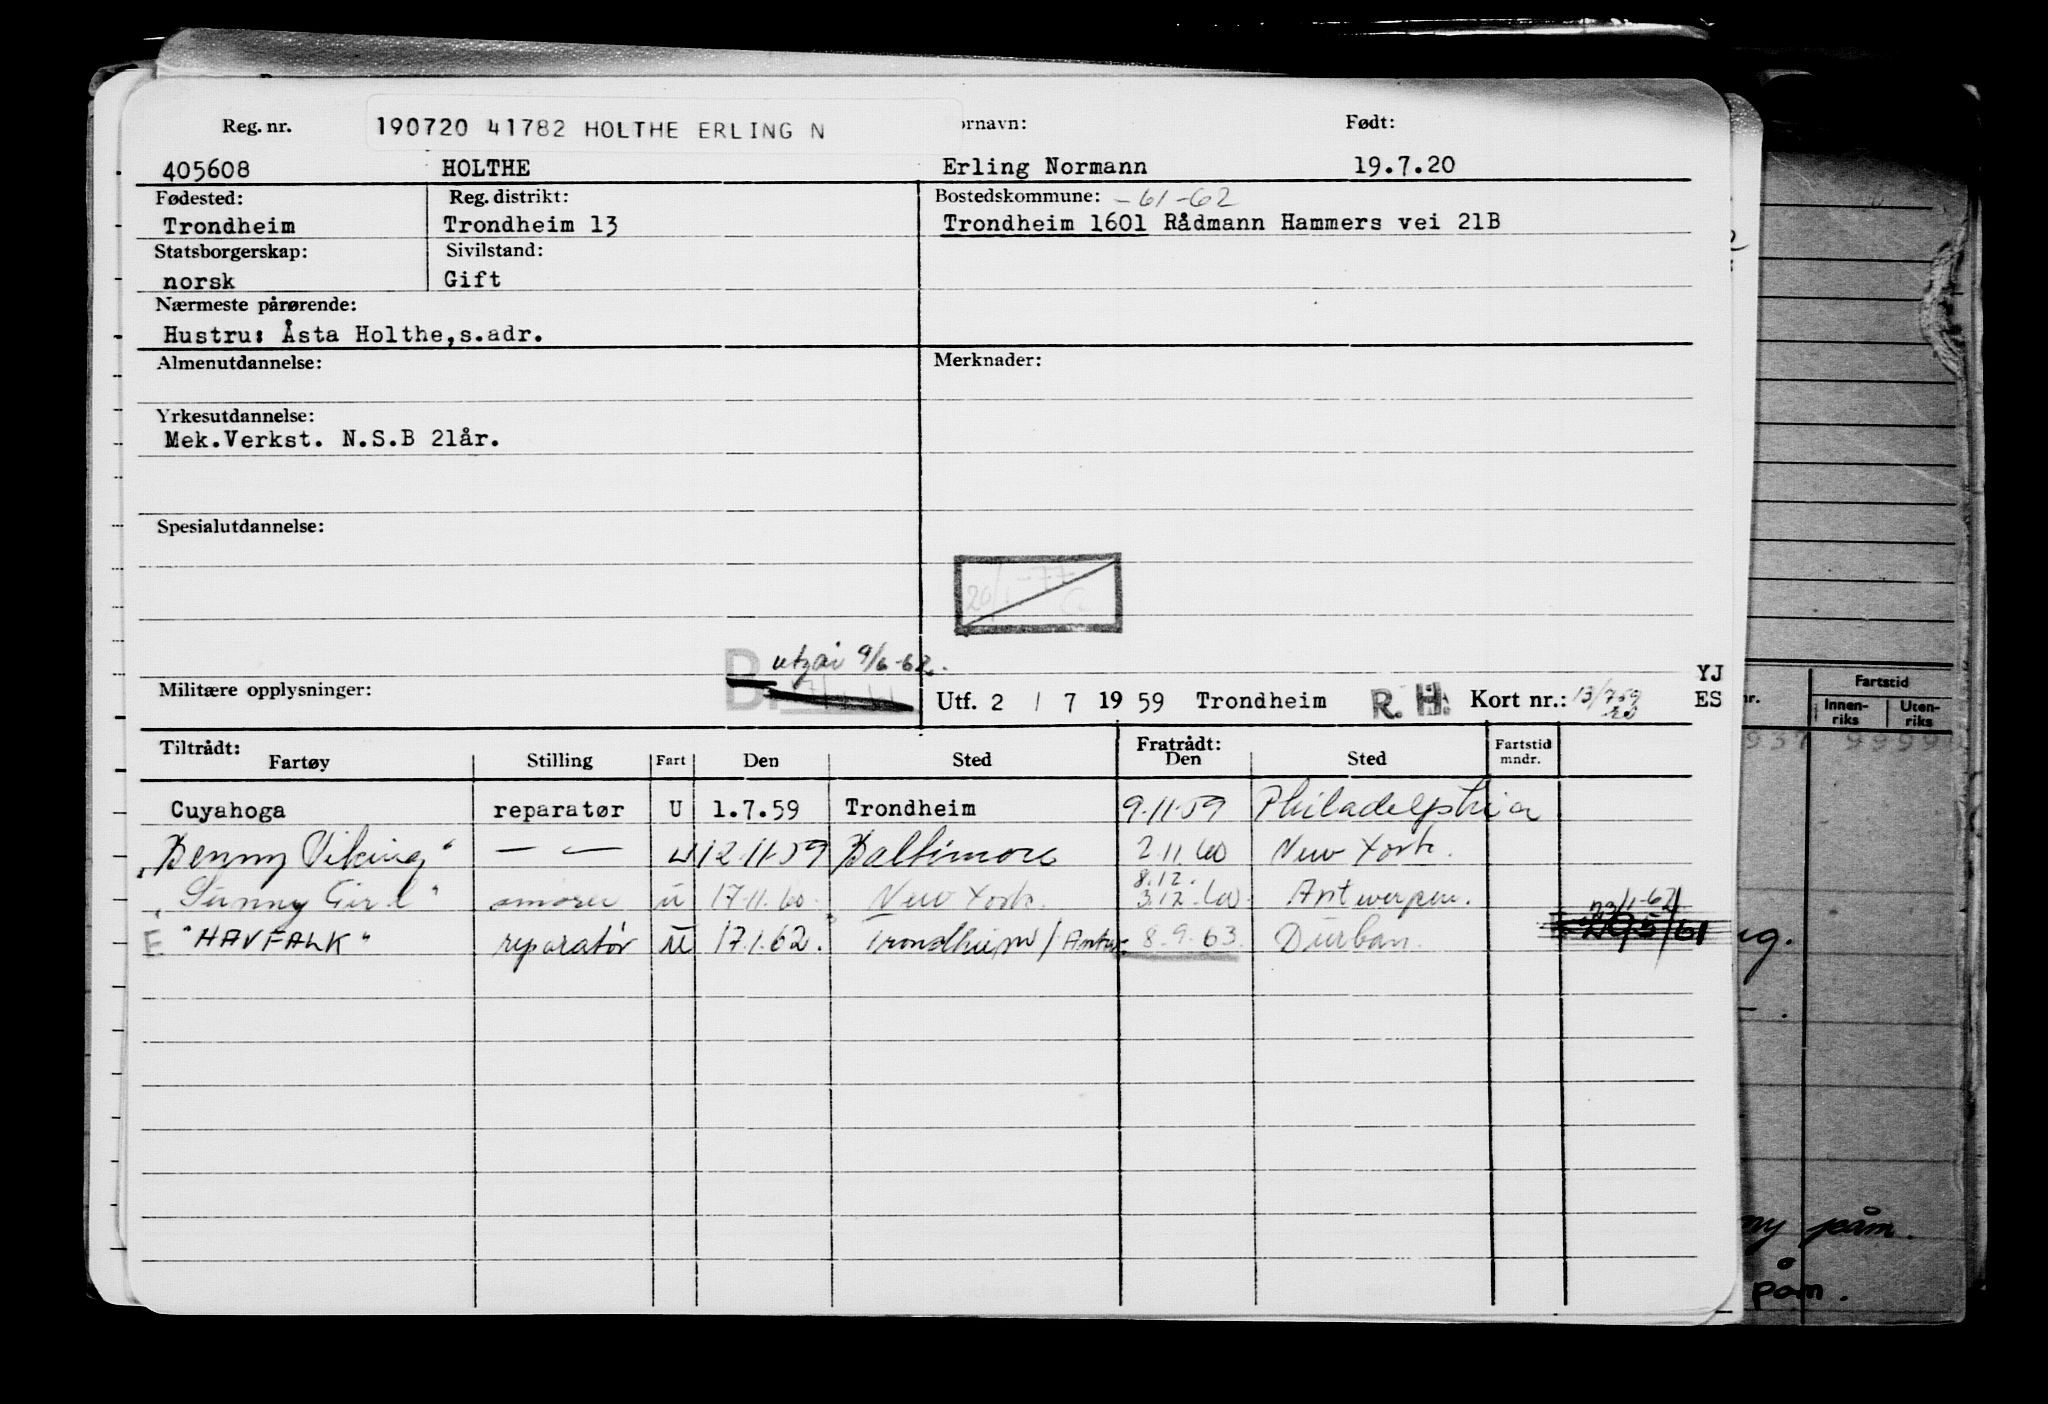 Reg. nr. 190720 41782 HOLTHE ERLING N ornavn: Født:
405608 HOLTHE Erling Normann 19.7.20
Fødested: Reg. distrikt: Bostedskommune: -61-62
Trondheim Trondheim 13 Trondheim 1601 Rådmann Hammers vei 21B
Statsborgerskap: Sivilstand:
norsk Gift
Nærmeste pårørende:
Hustru: Åsta Holthe,s.adr.
Almenutdannelse: Merknader:
Yrkesutdannelse:
Mek.Verkst. N.S.B 21år.
Spesialutdannelse:
utgår 9/6-62.
Militære opplysninger: Utf. 2 / 7 19 59 Trondheim R. H. Kort nr.: 13/7 59 YJ
ES
Tiltrådt: Fratrådt:
Fartøy Stilling Fart Den Sted Den Sted Fartstid mndr.
Cuyahoga reparatør U 1.7.59 Trondheim 9.11.59 Philadelphia
"Benny Viking" — — u 12.11.59 Baltimore 2.11.60 New York.
8.12.
"Sunny Girl" smører u 17.11.60. New York. 3.12.60. Antwerpen. 23/1-62
E "HAVFALK" reparatør u 17.1.62. Trondheim / Antw. 8.9.63. Durban. 29/5/61
Fartstid
nr. Innen-riks Uten-riks
937 9999
ng.
ny påm.
påm.